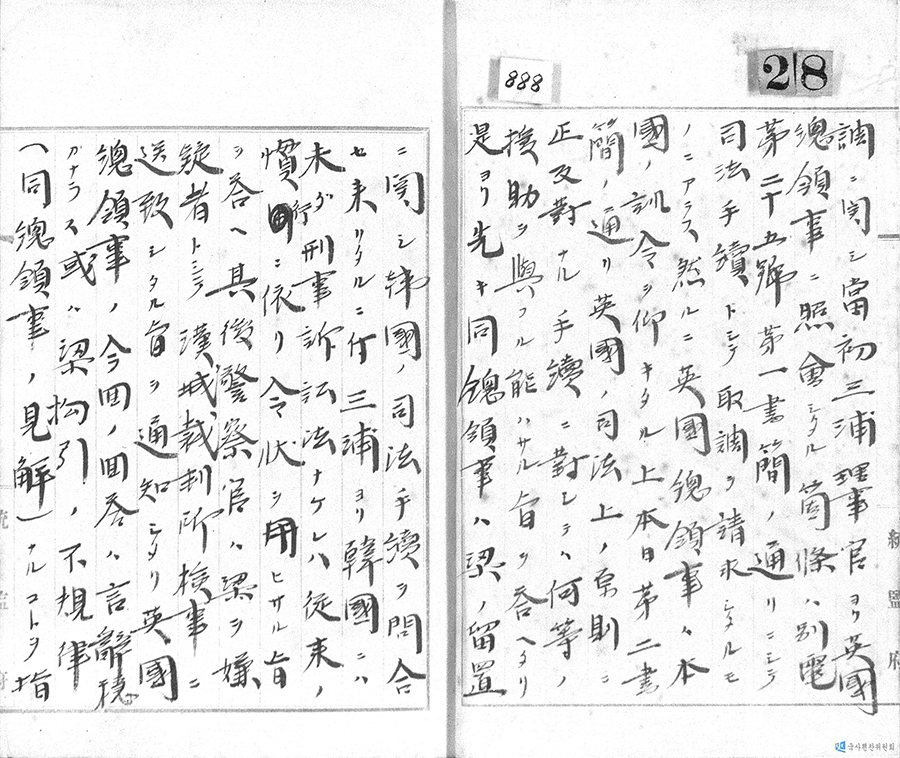 888
28
調ニ関シ當初三浦理事官ヨリ英國
總領事ニ照會シタル箇條ハ別電
第二十五號第一書簡ノ通リニシテ
司法手續トシテ取調ヲ請求シタルモ
ノニアラス然ルニ英國總領事ハ本
國ノ訓令ヲ仰キタル上本日第二書
簡ノ通リ英國ノ司法上ノ原則ニ
正反對ナル手續ニ對シテハ何等ノ
援助ヲ與フル能ハサル旨ヲ答ヘタリ
是ヨリ先キ同總領事ハ梁ノ留置
統監府
ニ関シ韓國ノ司法手續ヲ問合
セ来リタルニ付三浦ヨリ韓國ニハ
未ダ刑事訴訟法ナケレハ従来ノ
慣行ニ依リ令状ヲ用ヒサル旨
ヲ答ヘ其後警察官ハ梁ヲ嫌
疑者トシテ漢城裁判所検事ニ
送致シタル旨ヲ通知シタリ英國
總領事ノ今回ノ回答ハ言辭穏
カナラス或ハ梁拘引ノ不規律
(同總領事ノ見解)ナルコトヲ指
統監府
국사편찬위원회